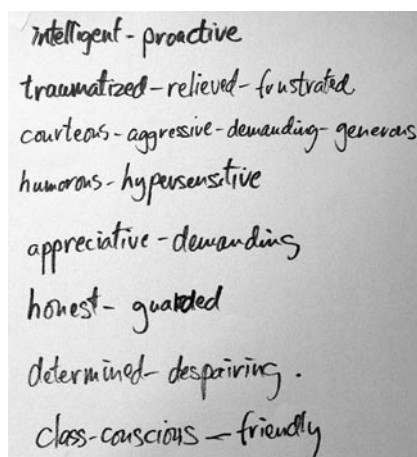 intelligent - proactive
traumatized - relieved - frustrated
courteous - aggressive - demanding - generous
humorous - hypersensitive
appreciative - demanding
honest - guarded
determined - despairing.
class-conscious - friendly